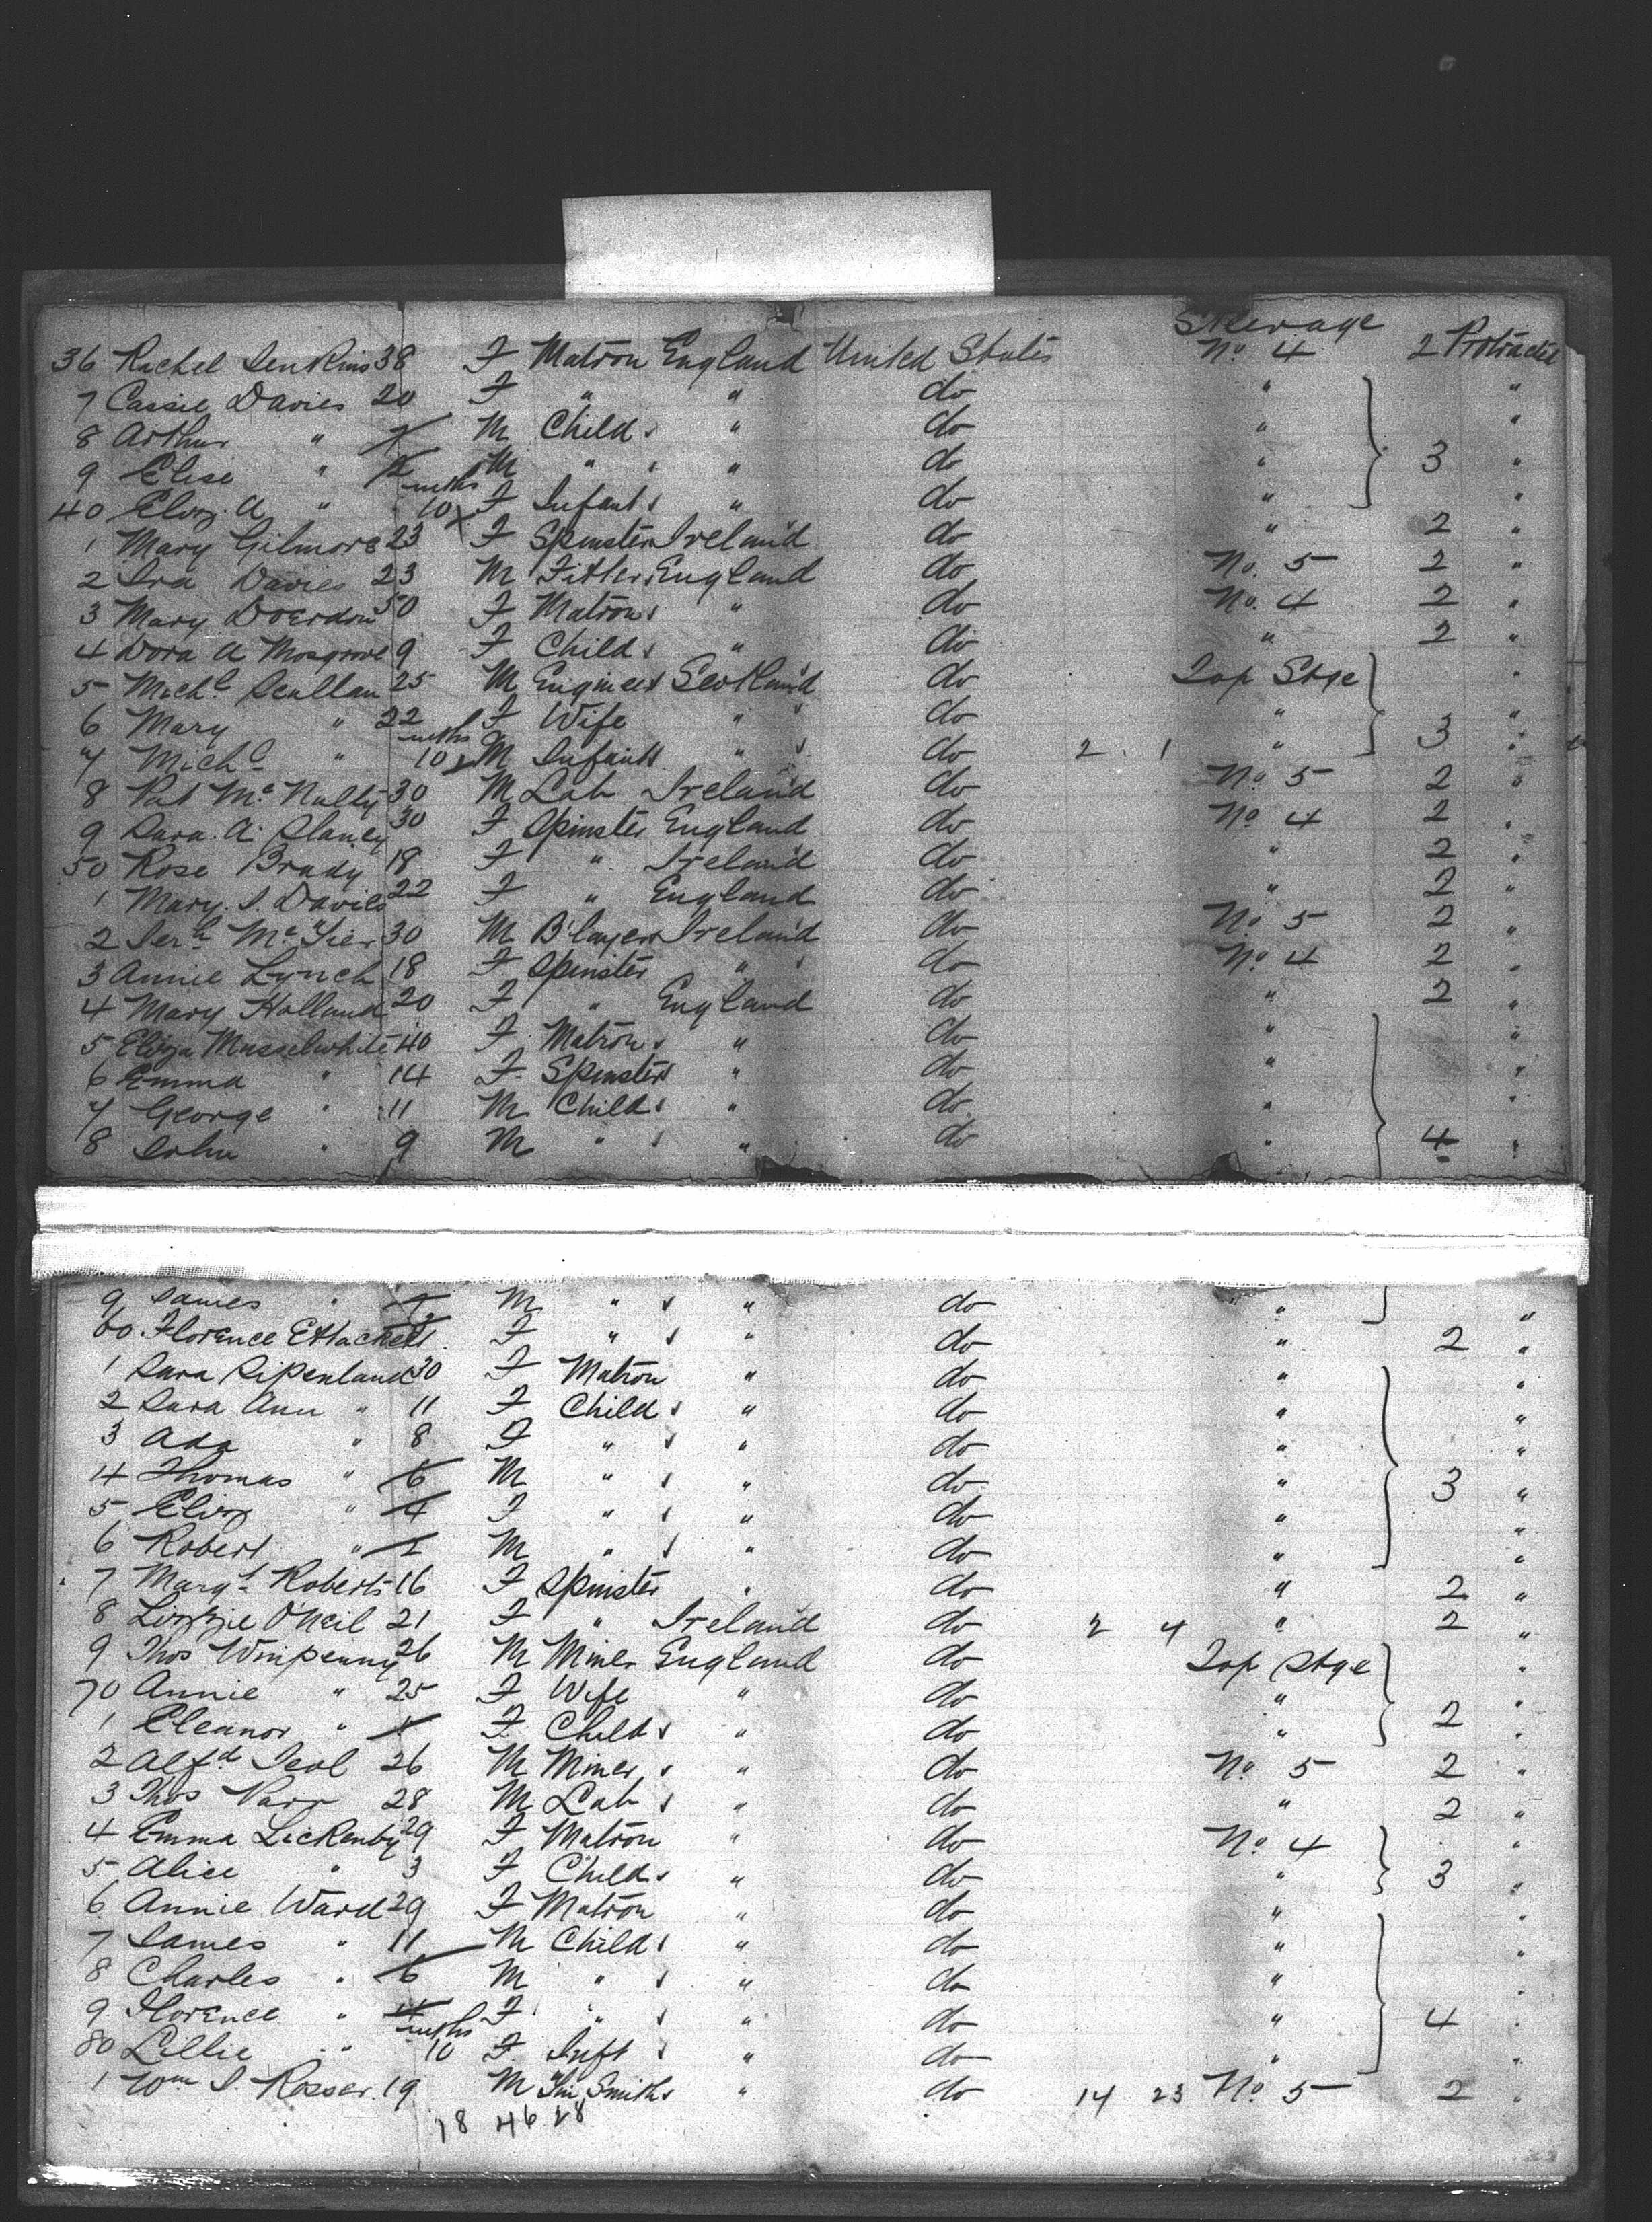 Steerage
36 Rachel Jenkins 38 F Matron England United States No. 4 2 Protracted
7 Cassie Davies 20 F " " do " "
8 Arthur " M Child " do " "
9 Elise " M " " do " 3 "
40 Eliz. A " mths 10 F Infant " do " "
1 Mary Gilmore 23 F Spinster Ireland do " 2 "
2 Ira Davies 23 M Fitter England do No. 5 2 "
3 Mary 50 F Matron " do No. 4 2 "
4 Dora A Mosgrove 9 F Child " do " 2 "
5 Michl Scullan 25 M Engineer Scotland do Top Stge "
6 Mary " 22 F Wife " do " "
7 Michl " mths 10 M Infant " do 2 1 " 3 "
8 Pat McNulty 30 M Lab Ireland do No. 5 2 "
9 Sara. A. Slaney 30 F Spinster England do No. 4 2 "
50 Rose Brady 18 F " Ireland do " 2 "
1 Mary. J. Davies 22 F " England do " 2 "
2 Jerh 30 M B'layer Ireland do No. 5 2 "
3 Annie Lynch 18 F Spinster " do No. 4 2 "
4 Mary Holland 20 F " England do " 2 "
5 Eliza Musselwhite 40 F Matron " do " "
6 Emma " 14 F Spinster " do " "
7 George " 11 M Child " do " "
8 John " 9 M " " do " 4 "
9 James " M " " do " "
60 Florence F " " do " 2 "
1 Sara Sipenland 30 F Matron " do " "
2 Sara Ann " 11 F Child " do " "
3 Ada " 8 F " " do " "
4 Thomas " 6 M " " do " 3 "
5 Eliz " 4 F " " do " "
6 Robert " M " " do " "
7 Margt Roberts 16 F Spinster " do " 2 "
8 Lizzie O'Neil 21 F " Ireland do 2 4 " 2 "
9 Thos Winpenny 26 M Miner England do Top Stge "
70 Annie " 25 F Wife " do " "
1 Eleanor " F Child " do " 2 "
2 Alfd 26 M Miner " do No. 5 2 "
3 Thos Parr 28 M Lab " do " 2 "
4 Emma Lickenby 29 F Matron " do No. 4 "
5 Alice " 3 F Child " do " 3 "
6 Annie Ward 29 F Matron " do " "
7 James " 11 M Child " do " "
8 Charles " 6 M " " do " "
9 Florence " 4 F " " do " 4 "
80 Lillie " mths 10 F Inft " do " "
1 Wm J. Rosser 19 M Tin Smith " do 14 23 No. 5 2 "
18 46 28